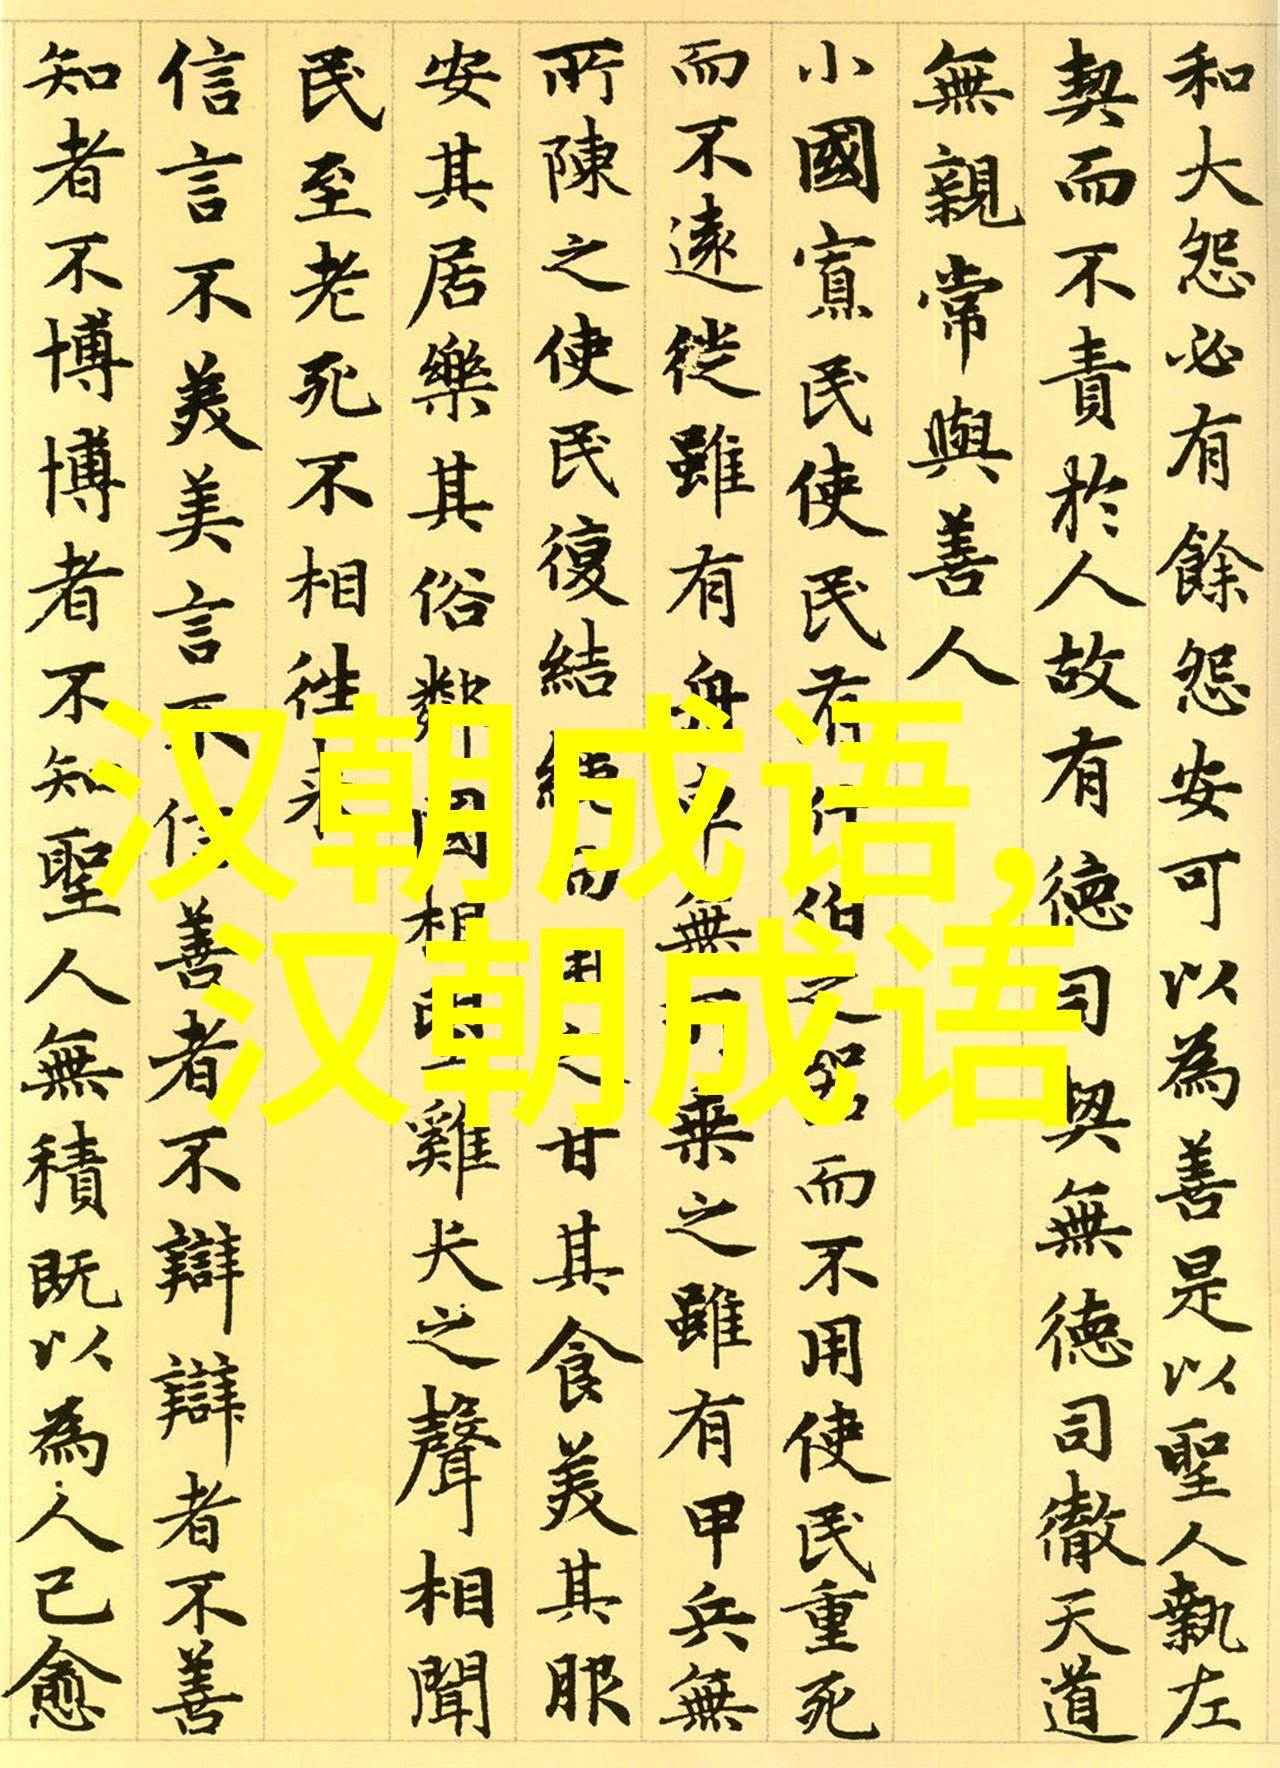 和大怨必有餘怨安可以為善是以聖人執左
契而不責於人故有德司契無德司徹天道
無親常與善人
小國寡民使民有什伯之器而不用使民重死
而不遠徙雖有舟車無所乘之雖有甲兵無
所陳之使民復結繩而用之甘其食美其服
安其居樂其俗鄰國相望雞犬之聲相聞
民至老死不相往来
信言不美美言不信善者不辯辯者不善
知者不博博者不知聖人無積既以為人己愈
汉朝成语,
汉朝成语